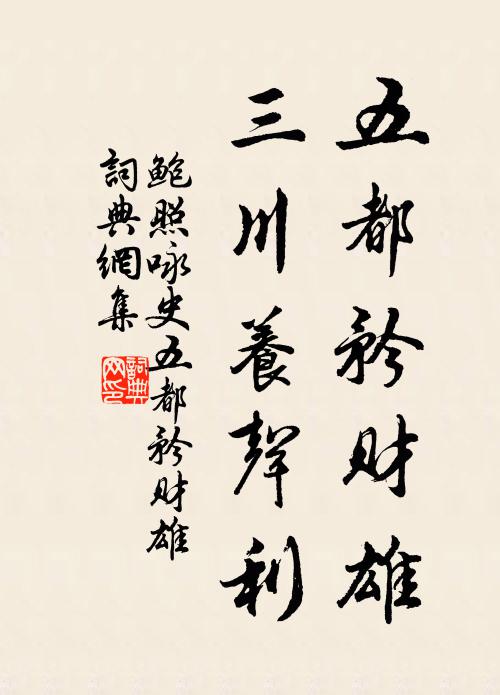 五都矜財雄
三川養聲利
鮑照咏史五都矜財雄
詞典網集
詞典網印